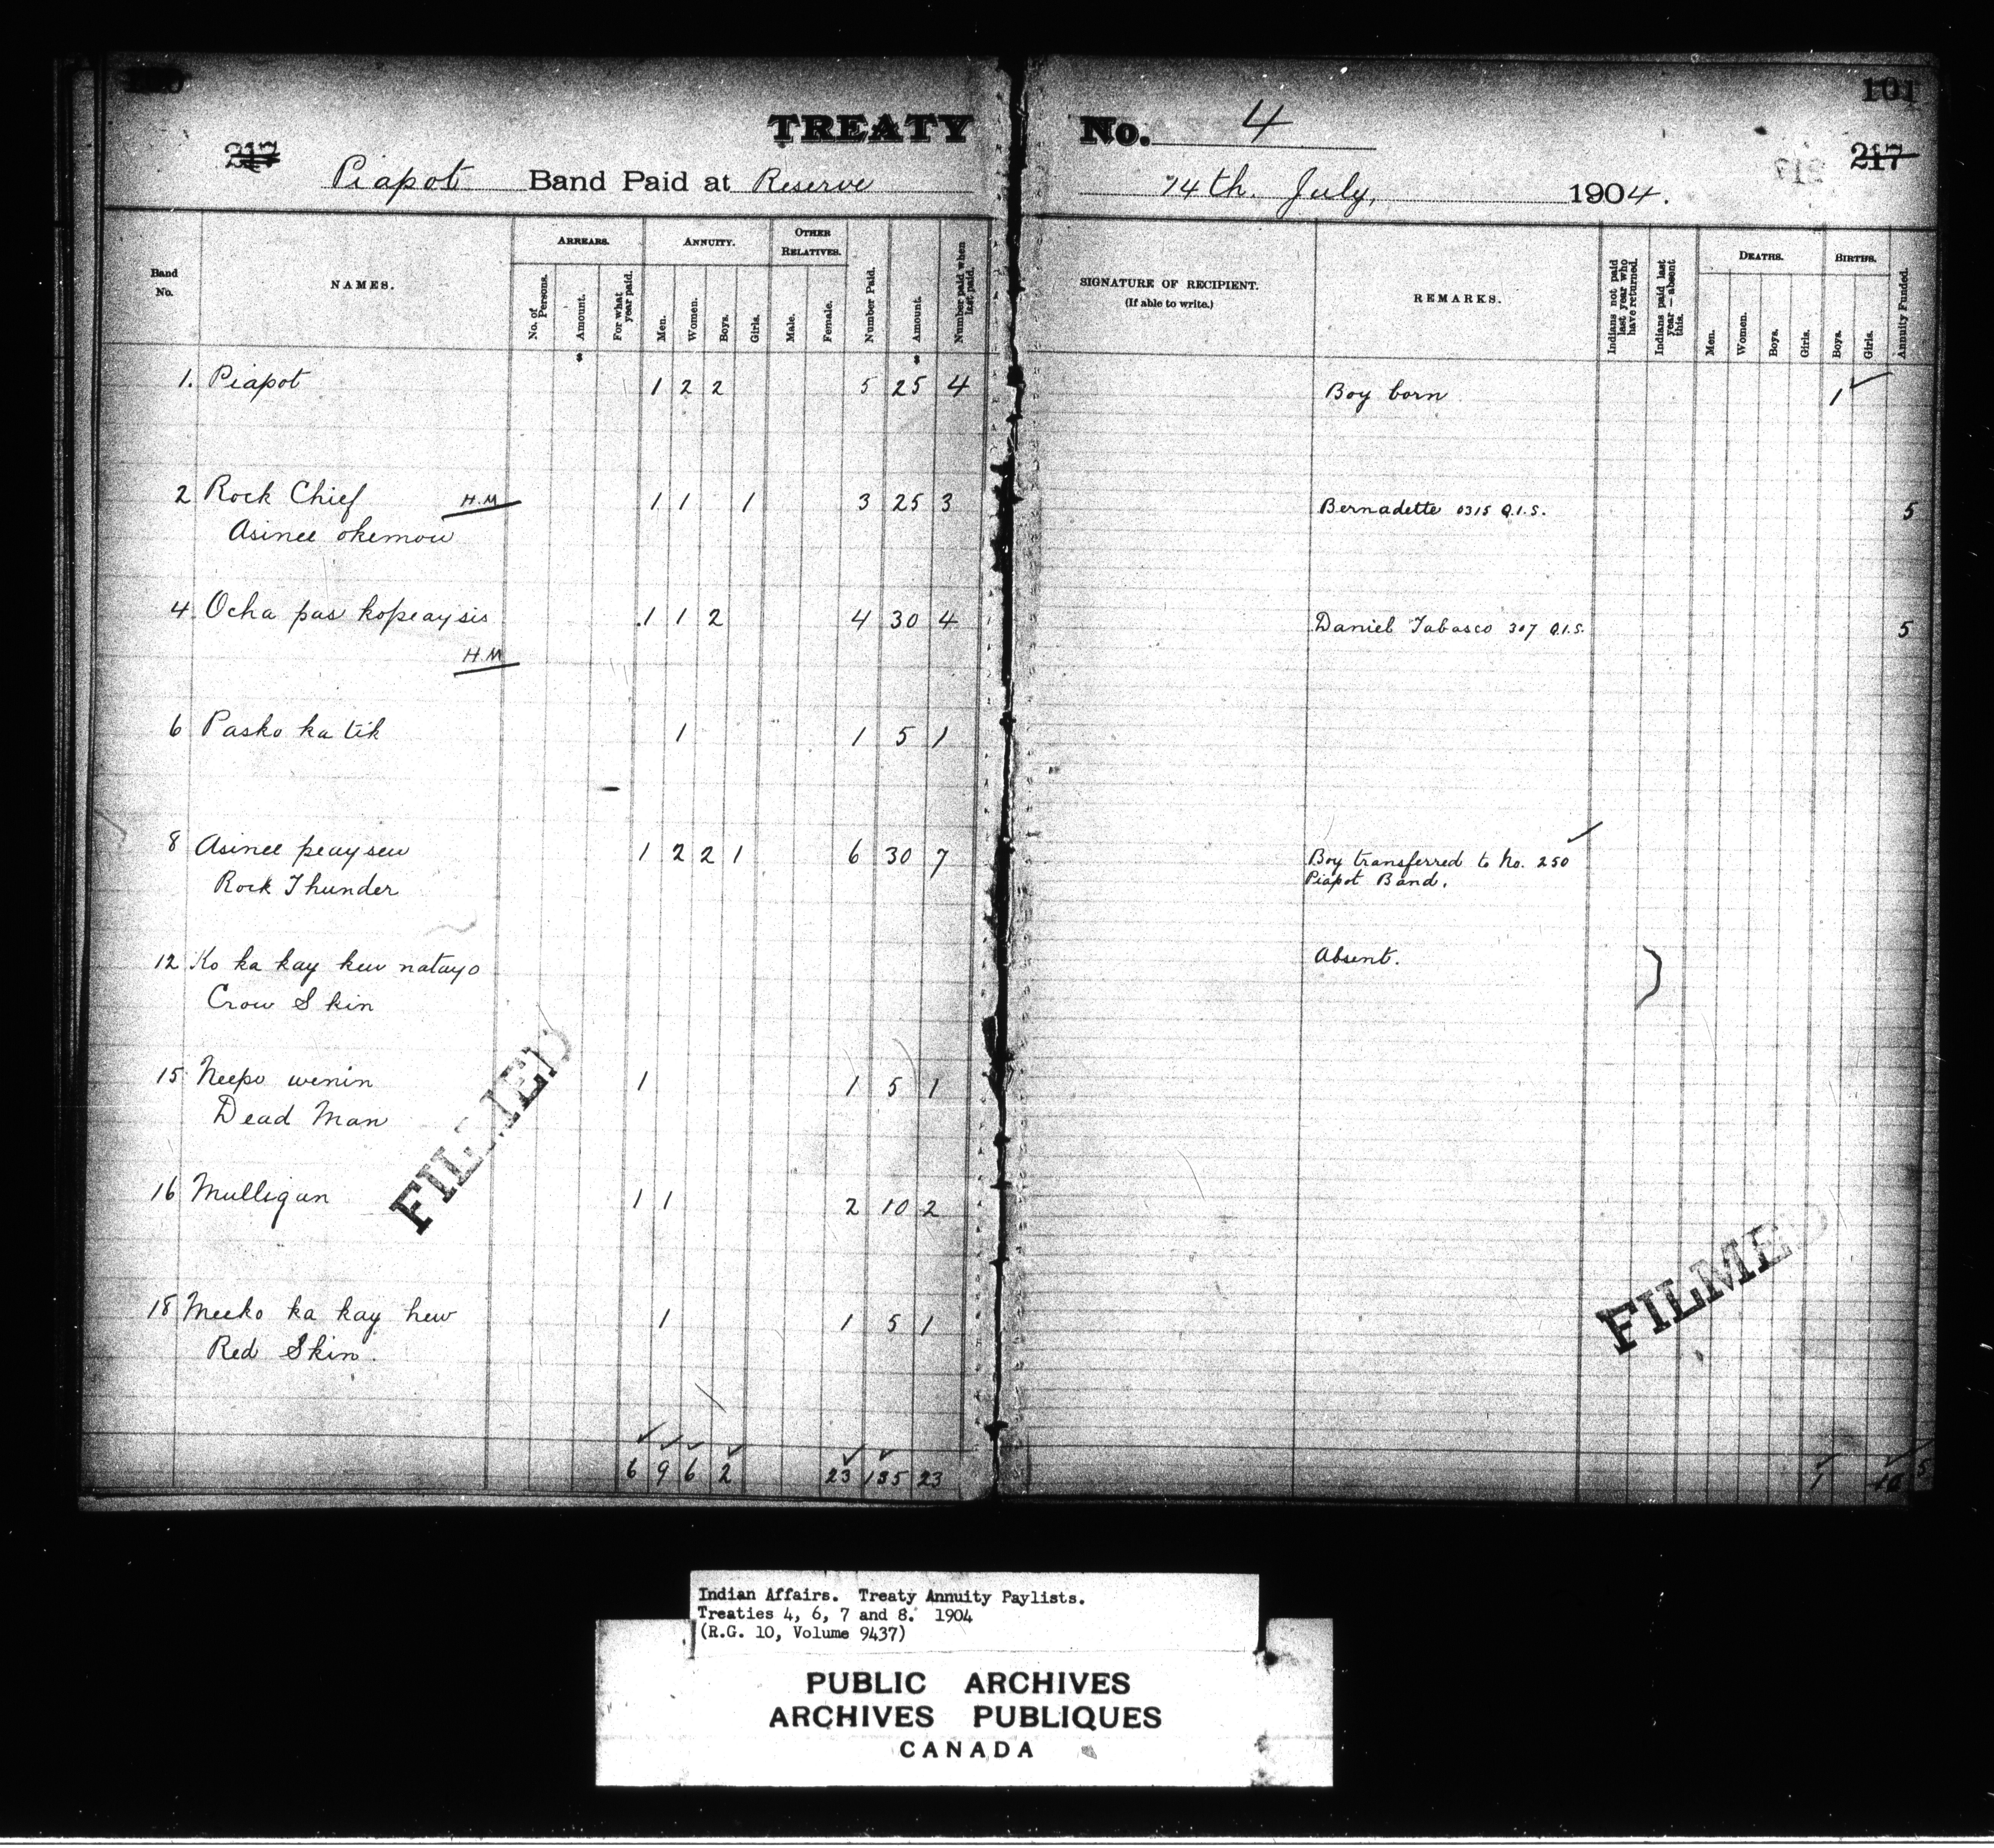 TREATY No. 4
101
217
217
Piapot Band Paid at Reserve 14th. July, 1904.
Band No.
NAMES.
ARREARS.
No. of Persons.
Amount.
For what year paid.
ANNUITY.
Men.
Women.
Boys.
Girls.
OTHER RELATIVES.
Male.
Female.
Number Paid.
Amount.
Number paid when last paid.
SIGNATURE OF RECIPIENT.
(If able to write.)
REMARKS.
Indians not paid last year who have returned.
Indians paid last year — absent this.
DEATHS.
Men.
Women.
Boys.
Girls.
BIRTHS.
Boys.
Girls.
Annuity Funded.
$ $
1. Piapot 1 2 2 5 25 4 Boy born 1
2 Rock Chief H.M 1 1 1 3 25 3 Bernadette 0315 Q.I.S. 5
Asinee okemow
4. Ocha pas kopeaysis 1 1 2 4 30 4 Daniel Tabasco 307 Q.I.S. 5
H.M
6 Pasko ka tik 1 1 5 1
8 Asinee peaysew 1 2 2 1 6 30 7 Boy transferred to No. 250
Rock Thunder Piapot Band.
12 Ko ka kay kew natayo Absent.
Crow Skin
15 Neepo wenin 1 1 5 1
Dead Man
16 Mulligan 1 1 2 10 2
18 Meeko ka kay hew 1 1 5 1
Red Skin.
FILMED
FILMED
6 9 6 2 23 135 23 1
Indian Affairs. Treaty Annuity Paylists.
Treaties 4, 6, 7 and 8. 1904
(R.G. 10, Volume 9437)
PUBLIC ARCHIVES
ARCHIVES PUBLIQUES
CANADA